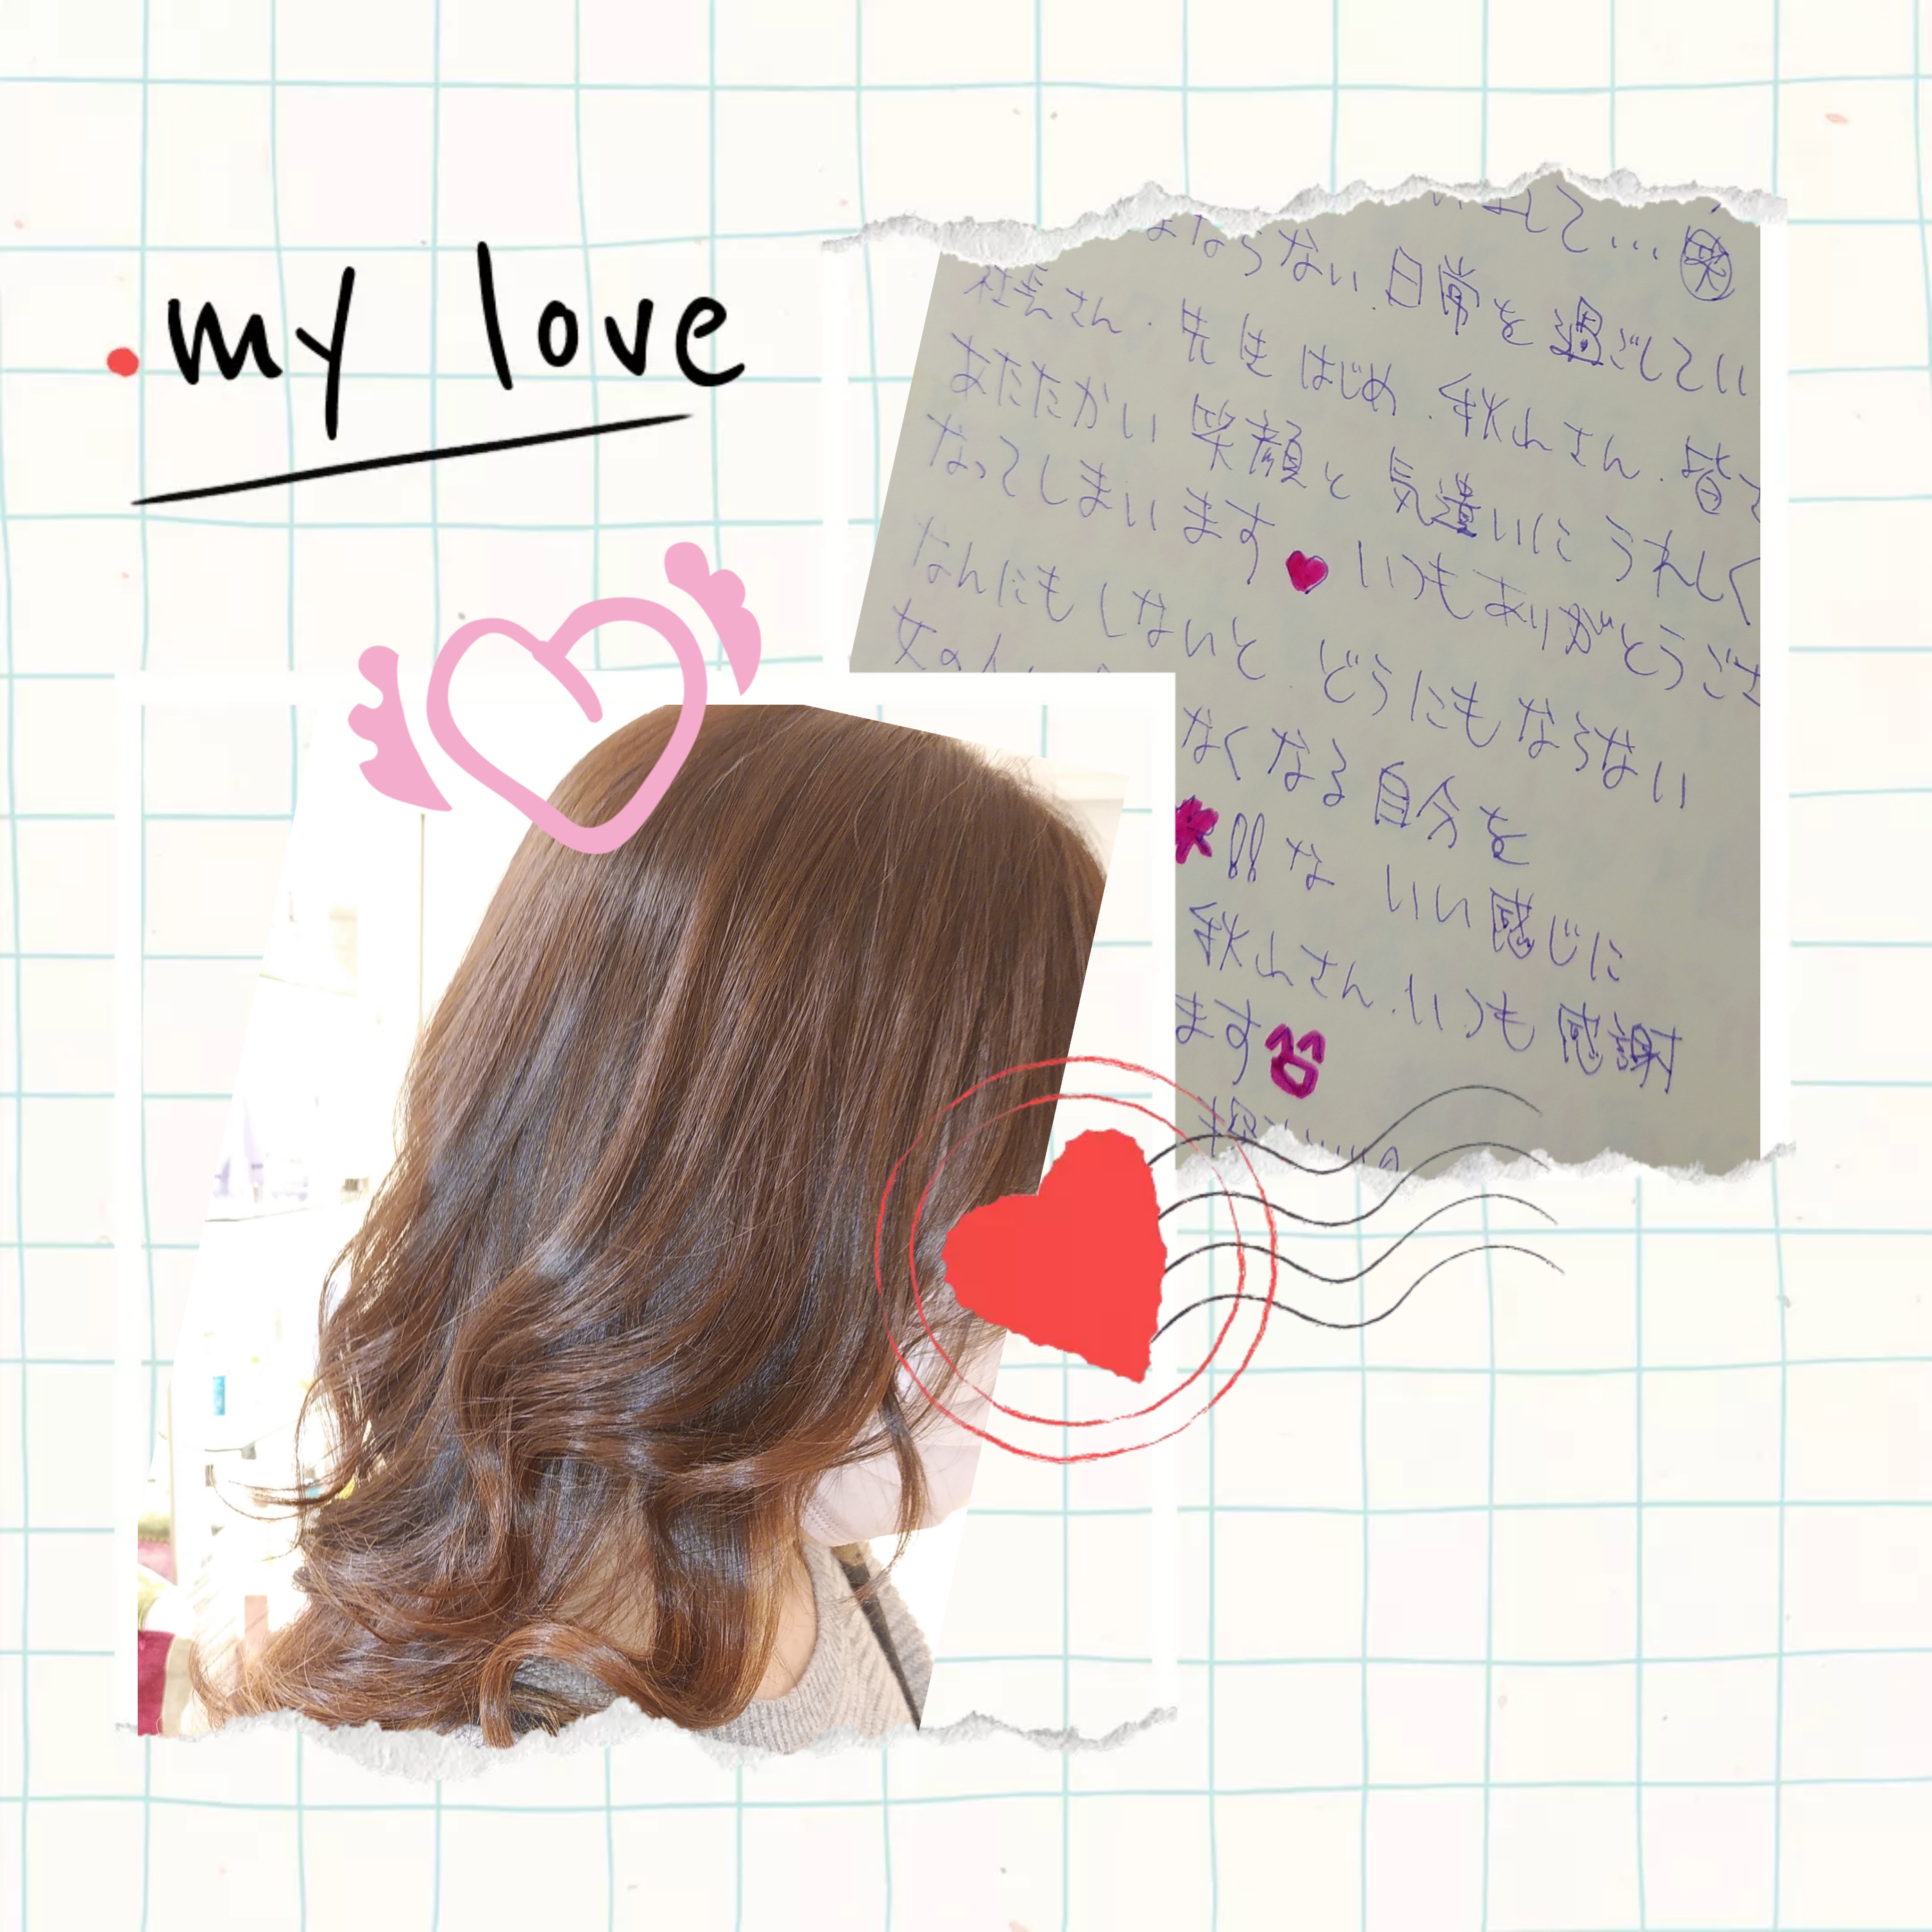 my love
いまして… 笑
ままならない、日常を過ごしてい
社長さん、先生はじめ、秋山さん、皆
あたたかい笑顔と気遣いにうれしく
なってしまいます♥いつもありがとうござ
なんにもしないと、どうにもならない
女の人
なくなる自分を
!!な いい感じに
秋山さん、いつも感謝
ます